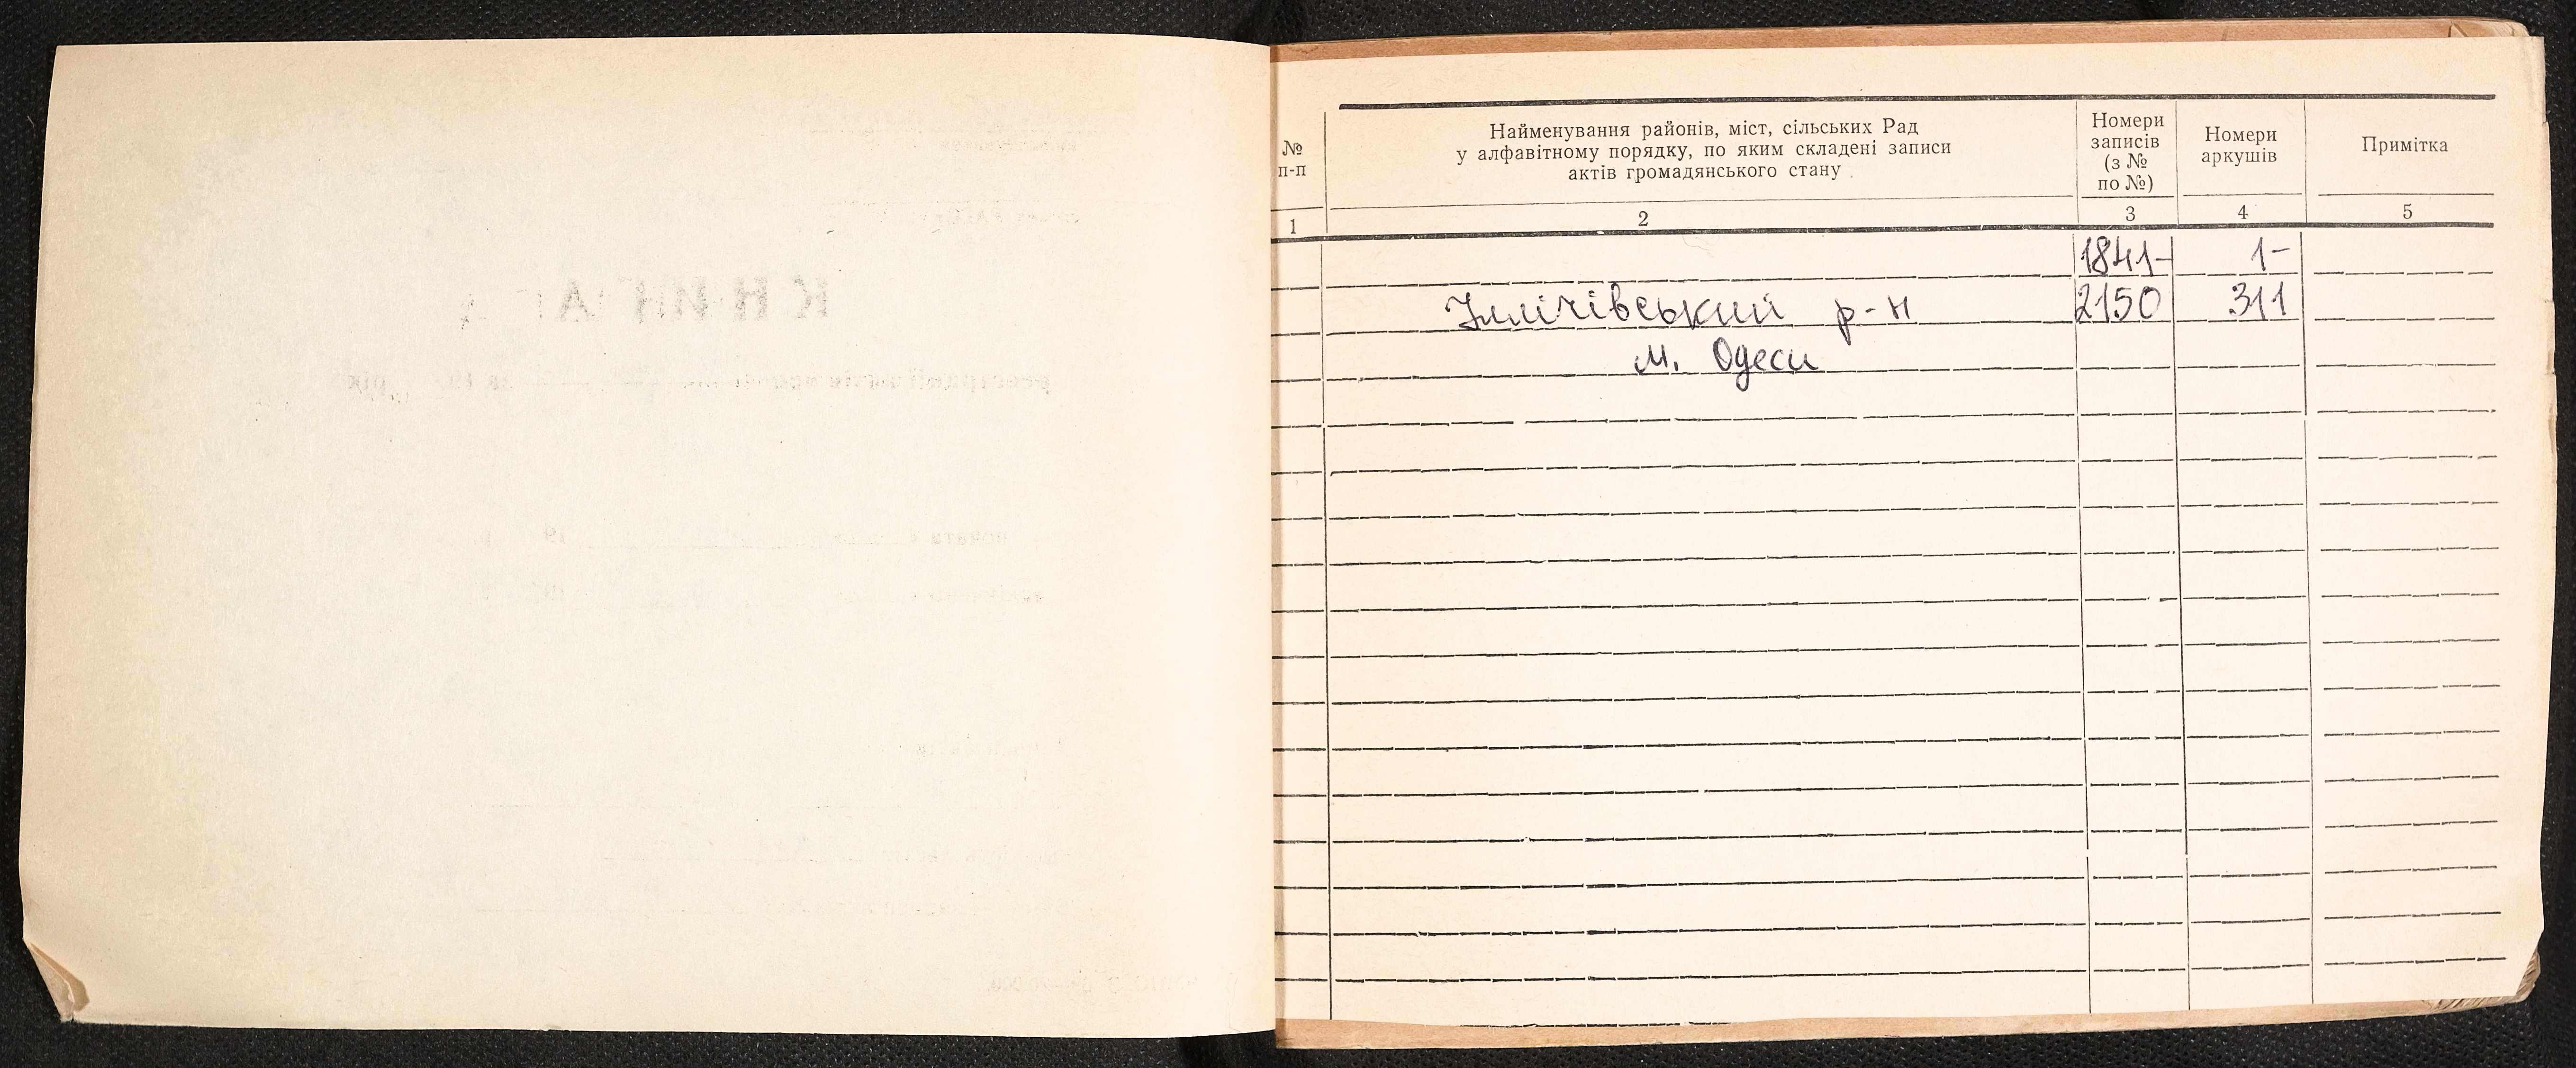 №
п-п
Найменування районів, міст, сільських Рад
у алфавітному порядку, по яким складені записи
актів громадянського стану
Номери
записів
(з №
по №)
Номери
аркушів
Примітка
1 2 3 4 5
1841- 1-
Іллічівський р-н 2150 311
м. Одеси